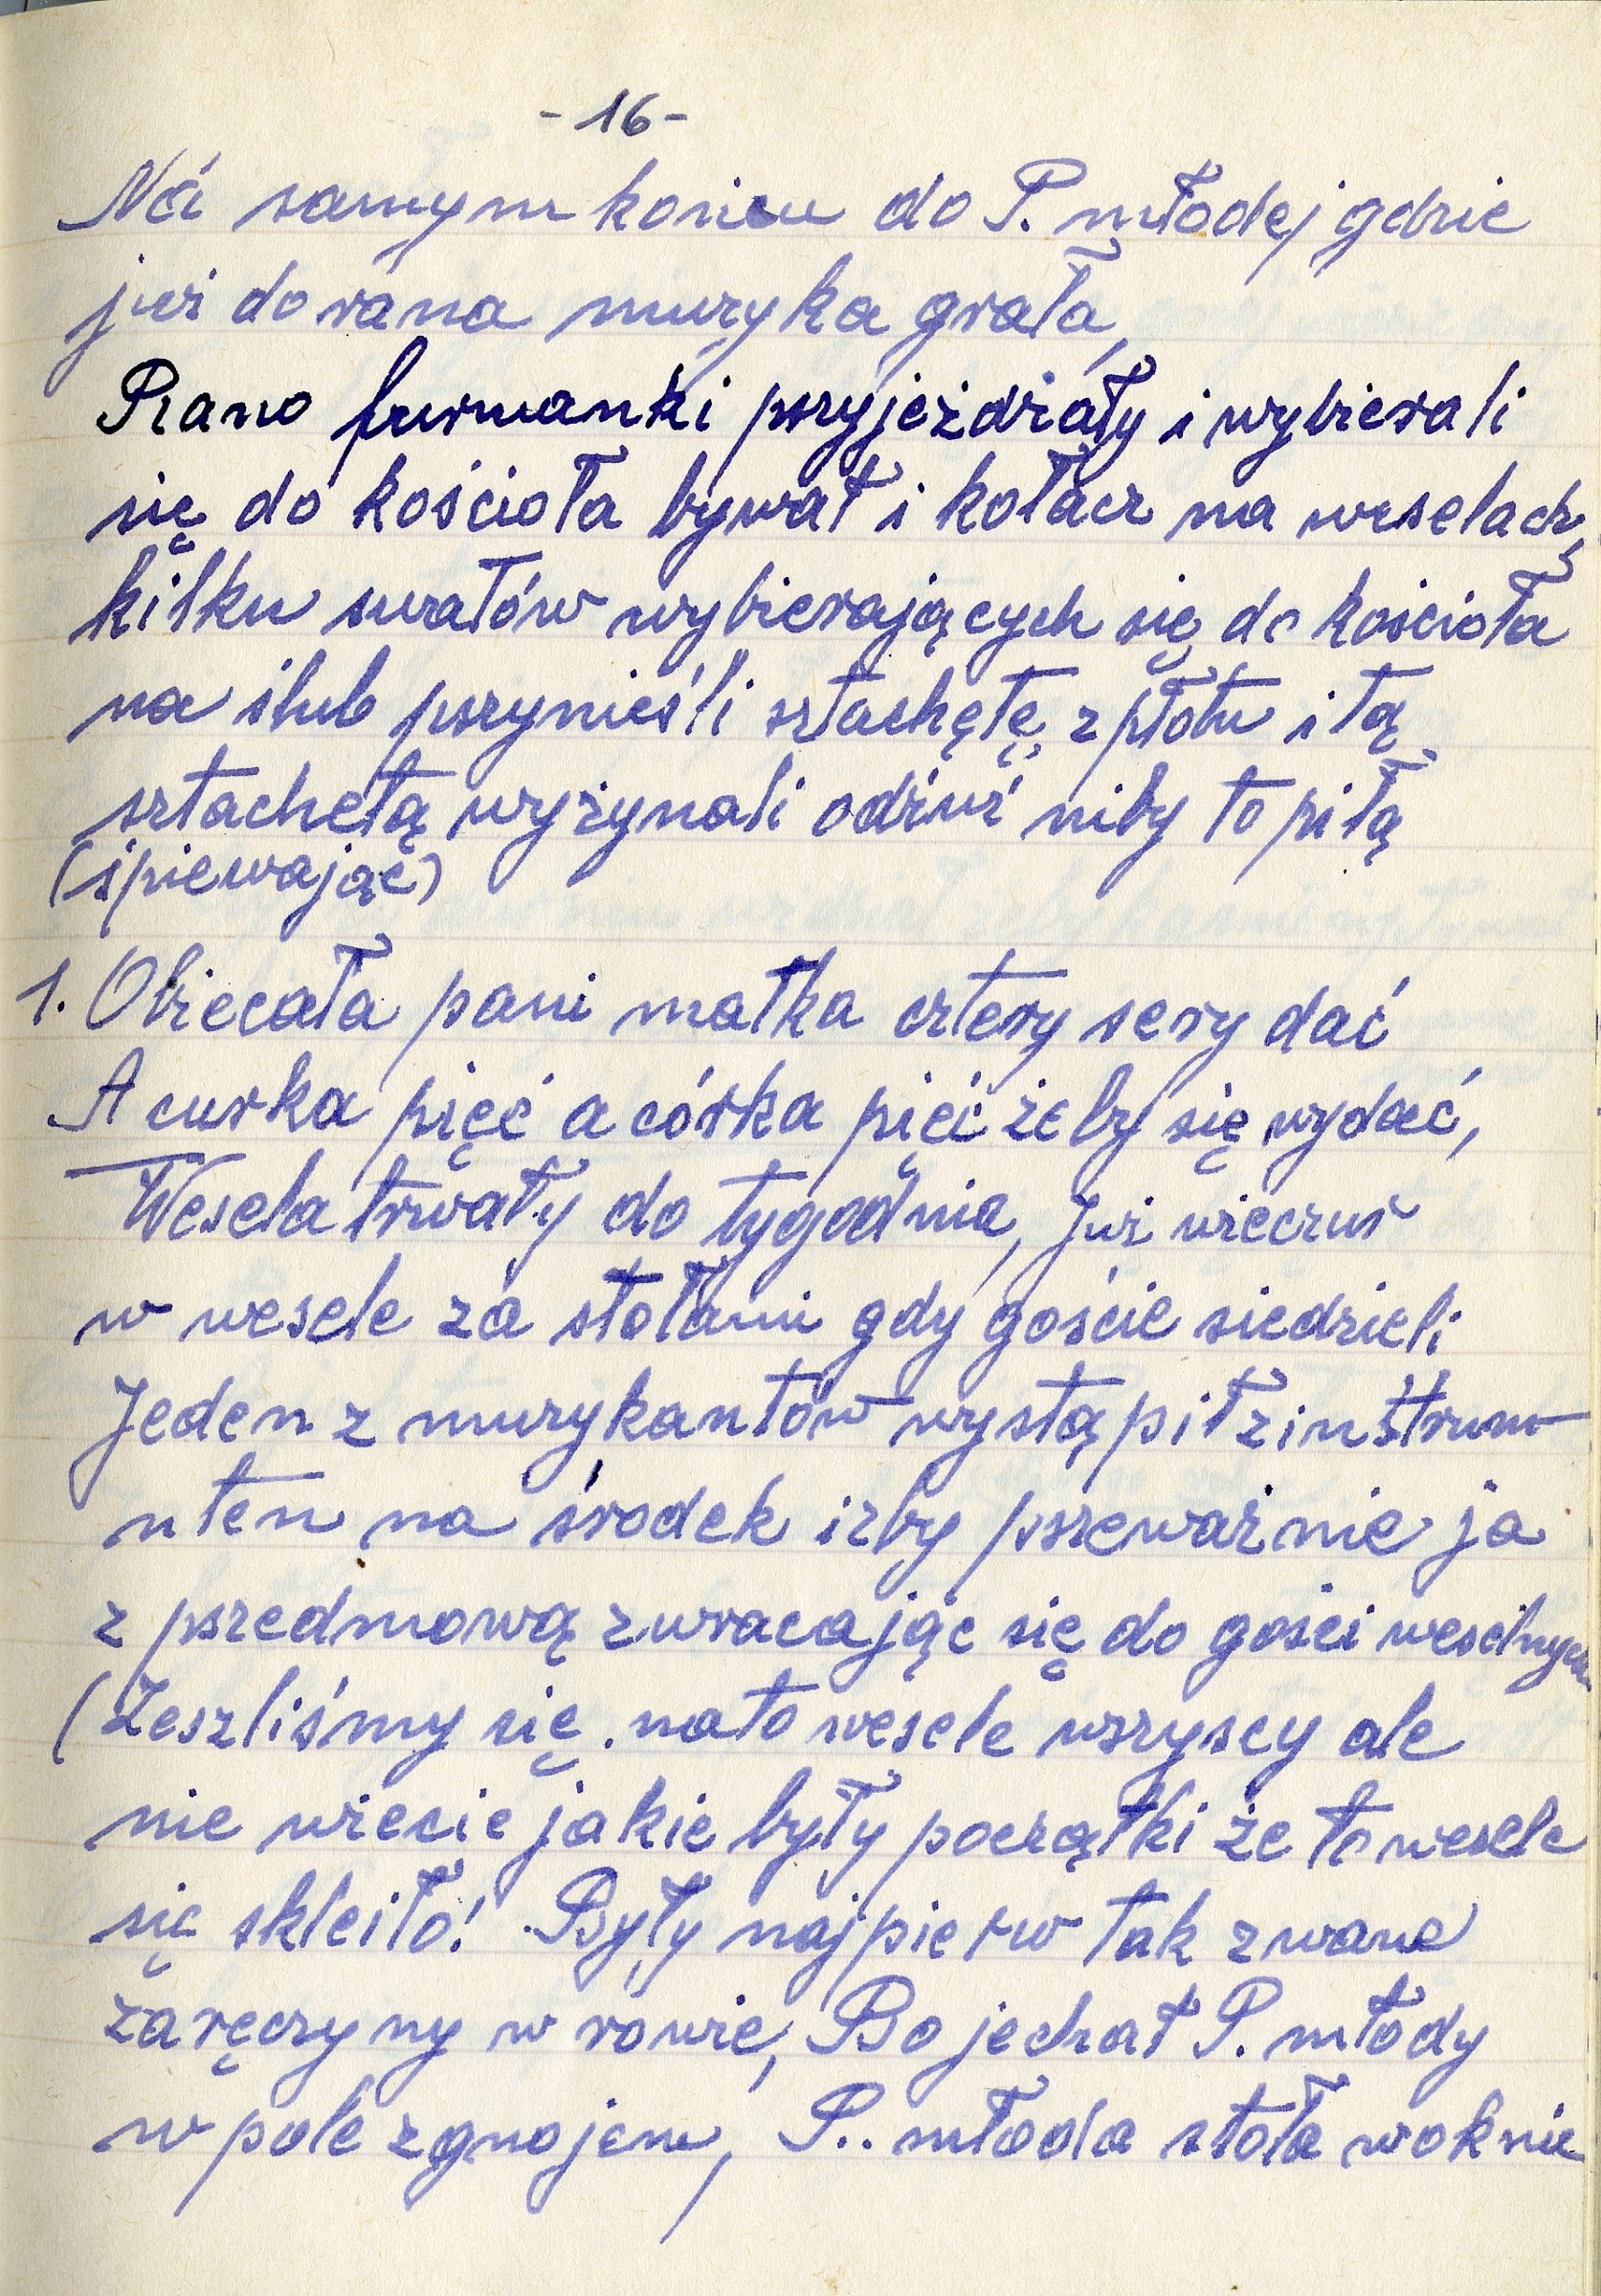 - 16 -
Na samym końcu do P. młodej gdzie
już do rana muzyka grała,
Rano furmanki pszyjeżdżały i wybierali
się do kościoła bywał i kołacz na weselach,
kilku swatów wybierających się do kościoła
na ślub pszynieśli sztachętę z płotu i tą
sztachetą wyżynali odźwi niby to piłą
(śpiewając)
1. Obiecała pani matka cztery sery dać
A curka pięć a córka pięć żeby się wydać,
Wesela trwały do tygodnia, Już wieczur
w wesele za stołami gdy goście siedzieli
Jeden z muzykantów wystąpił z inśtrum
nten na środek izby pszeważnie ja
z pszedmową zwracając się do gości weselnych
(Zeszliśmy się na to wesele wszyscy ale
nie wiecie jakie były początki że to wesele
się skleiło! Były najpierw tak zwane
zaręczyny w rowie, Bo jechał P. młody
w pole z gnojem, P.. młoda stoła woknie